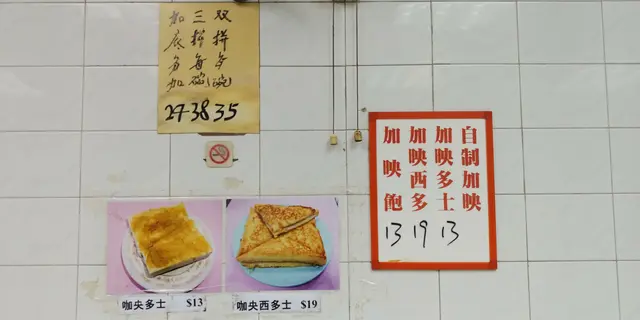 双拼每碗 35
三拼每碗 38
加底另加
自制加映
加映多士 13
加映西多 19
加映飽 13
咖央多士 $13
咖央西多士 $19